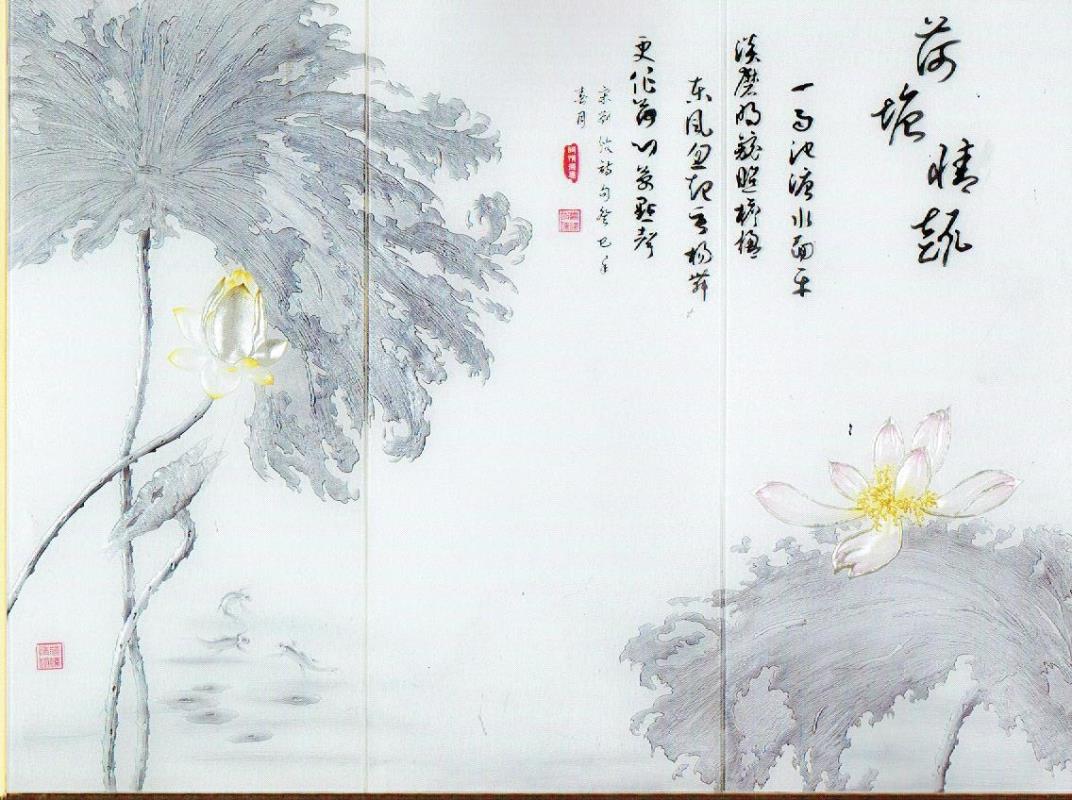 荷塘情
一雨池塘水面平
淡磨明鏡照檐楹
东风忽起垂杨舞
更作荷心萬點聲
宋刘攽詩句癸巳年
春月